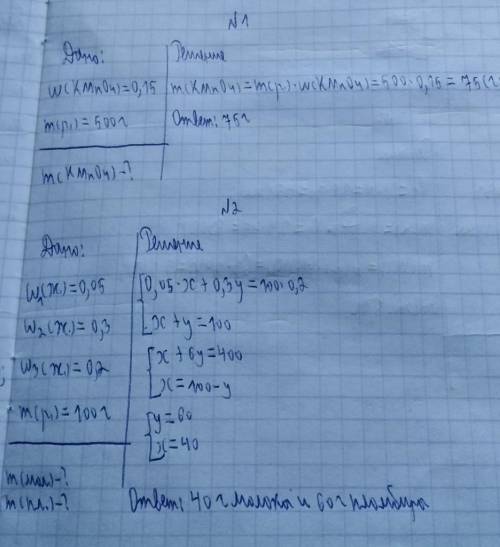 N1
Дано:
w(KMnO4)=0,15
m(р.)=500г
m(KMnO4)-?
Решение
m(KMnO4)=m(р.)·w(KMnO4)=500·0,15=75(г
Ответ: 75г
N2
Дано:
w1(ж.)=0,05
w2(ж.)=0,3
w3(ж.)=0,2
m(р.)=100г
m(мол.)-?
m(пл.)-?
Решение
0,05·x+0,3y=100·0,2
x+y=100
x+6y=400
x=100-y
y=60
x=40
Ответ: 40 г молока и 60 г пломбира